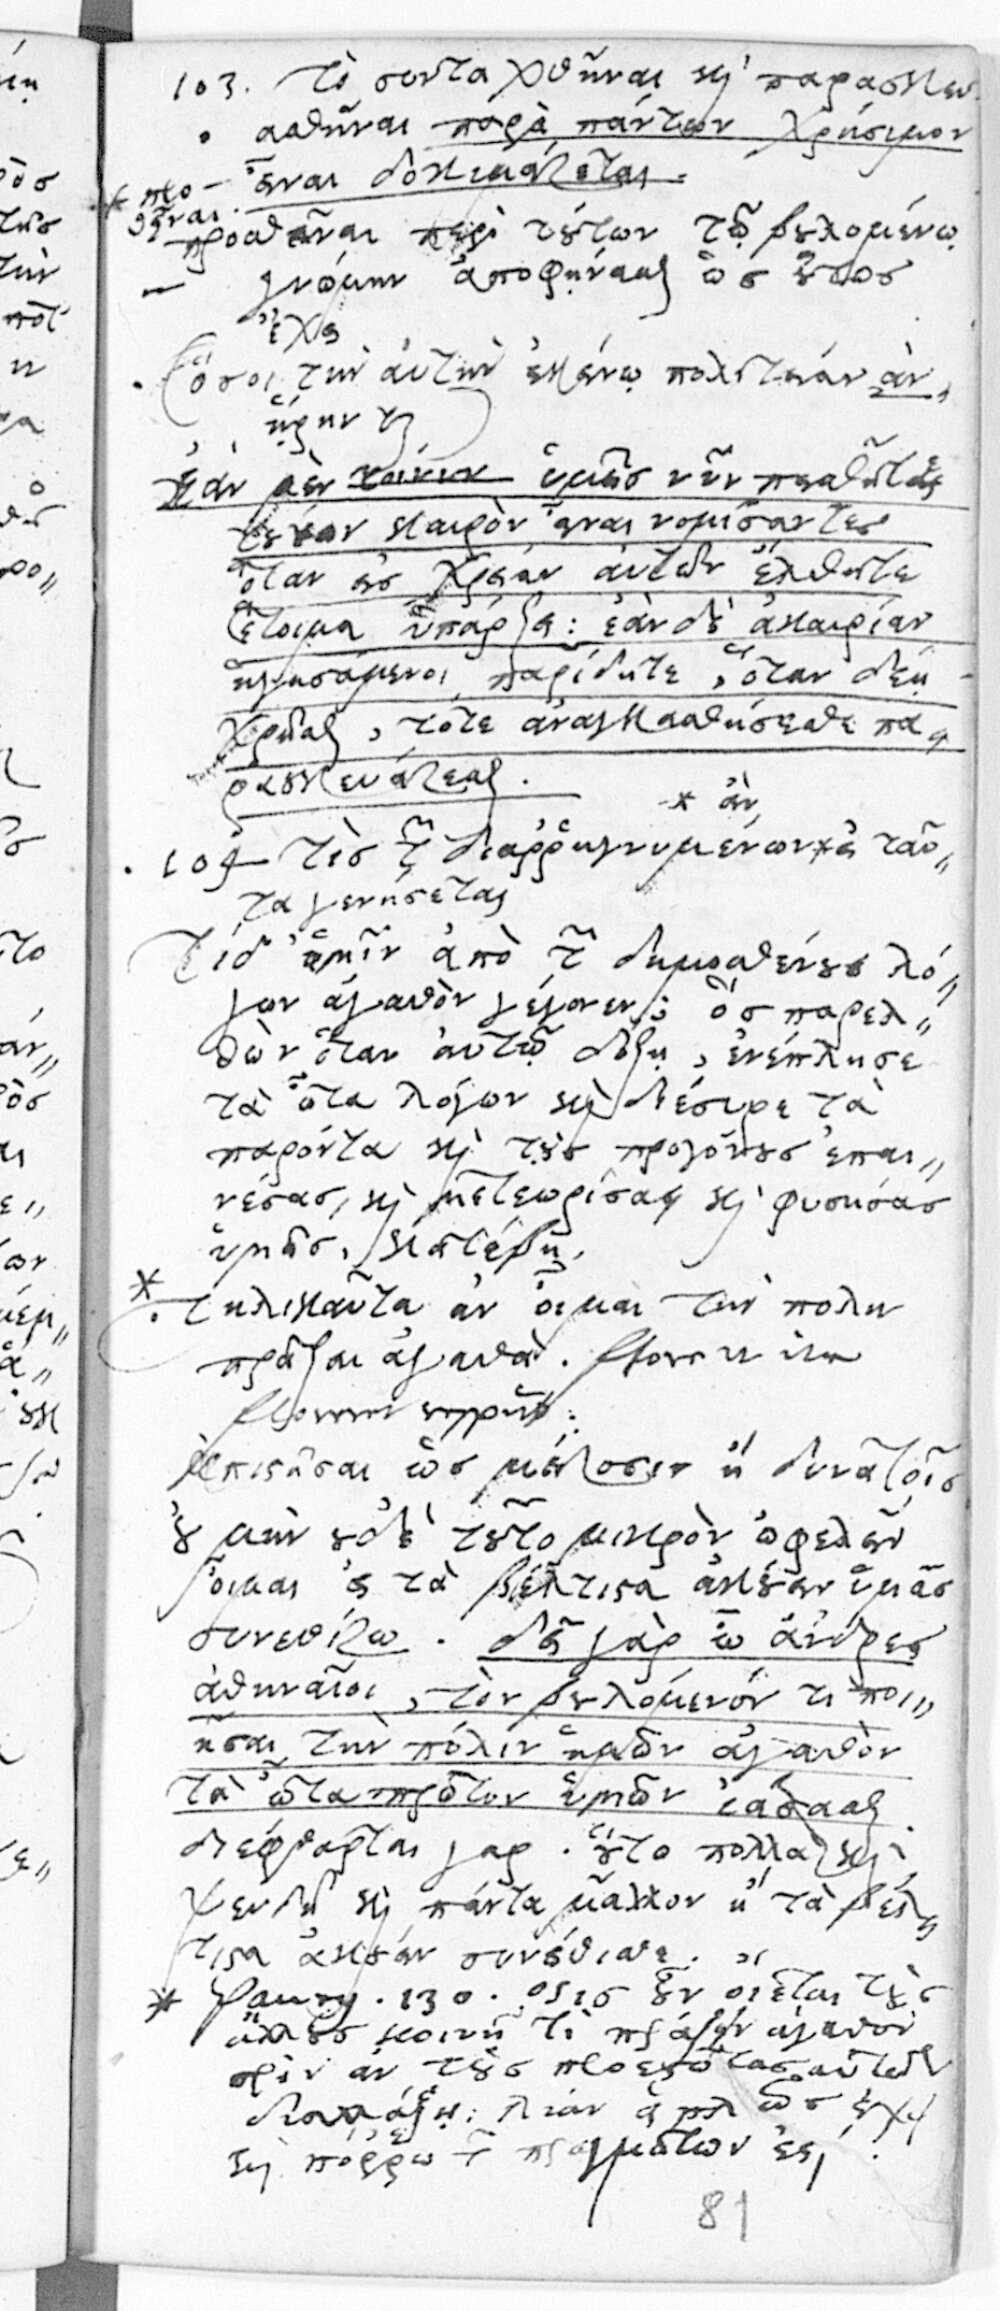 103. τὸ συνταχθῆναι κὶ παρασκευ
ασθῆναι παρὰ πάντων χρήσιμον
εἶναι δοκιμάζεται.
* προ-
θῆναι.
προσθεῖναι περὶ τούτων τῷ βουλομένῳ
γνώμην ἀποφήνασθαι ὡς οὕτως
ἔχει
ὅσοι τὴν αὐτὴν ἐκείνῳ πολιτείαν ἀν,,
ᾕρηνται
ἐὰν μὲν τοίνυν ὑμεῖς νῦν πεισθῆτε
τούτων καιρὸν εἶναι νομίσαντες
ὅταν εἰς χρείαν αὐτῶν ἔλθητε
ἕτοιμα ὑπάρξει: ἐὰν δὲ ἀκαιρίαν
ἡγησάμενοι παρίδητε, ὅταν δέῃ
χρῆσθαι, τότε ἀναγκασθήσεσθε πα,,
ρασκευάζεσθαι.
* ἂν
104 τίς τῶν διαῤῥηγνυμένων ταῦ,,
τα γενήσεται
Τί δ' ἡμῖν ἀπὸ τῶν δημοσθένους λό,,
γων ἀγαθὸν γέγονεν; ὃς παρελ,,
θὼν ὅταν αὐτῷ δόξῃ, ἐνέπλησε
τὰ ὦτα λόγων κὶ διέσυρε τὰ
παρόντα κὶ τοὺς προγόνους ἐπαι,,
νέσας, κὶ μετεωρίσας κὶ φυσήσας
ὑμᾶς, κατέβη.
* τηλικαῦτα ἂν οἶμαι τὴν πόλιν
πρᾶξαι ἀγαθὰ.
ὡς μείζοσιν ἢ δυνατοῖς
οὐ μὴν οὐδὲ τοῦτο μικρὸν ὠφελεῖν
οἶμαι εἰ τὰ βέλτιστα ἀκούειν ὑμᾶς
συνεθίζω. δεῖ γὰρ ὦ ἄνδρες
ἀθηναῖοι, τὸν βουλόμενόν τι ποι,,
ῆσαι τὴν πόλιν ἡμῶν ἀγαθὸν
τὰ ὦτα πρῶτον ὑμῶν ἰάσασθαι
διέφθαρται γαρ. οὕτω πολλὰ κὶ
ψευδῆ κὶ πάντα μᾶλλον ἢ τὰ βέλ,,
τιστα ἀκούειν συνείθισθε.
* 130. ὅστις οὖν οἴεται τοὺς
ἄλλους κοινῇ τὶ πράξειν ἀγαθὸν
πρὶν ἂν τοὺς προεστῶτας αὐτῶν
διαλλάξῃ: λίαν ἁπλῶς ἔχει
κὶ πόῤῥω τῶν πραγμάτων ἐστί.
81